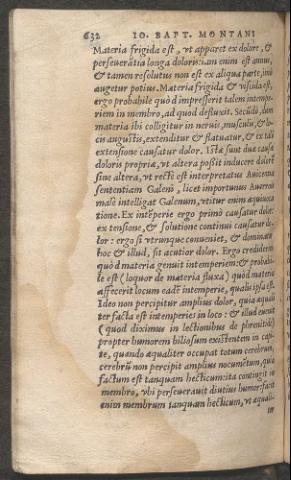 632 IO. BAPT. MONTANI
Materia frigida est, vt apparet ex dolore, &
perseuerãtia longa doloris: iam enim est annus,
& tamen resolutus non est ex aliqua parte, imò
augetur potius. Materia frigida & viscida est,
ergo probabile quòd impresserit talem intempe,
riem in membro, ad quod defluxit. Secũdò, dum
materia ibi colligitur in neruis, musculis, & lo-
cis angustis, extenditur & flatuatur, & ex tali
extensione causatur dolor. Istæ sunt duæ causæ
doloris propriæ, vt altera possit inducere dolorẽ
sine altera, vt rectè est interpretatus Auicenna
sententiam Galeni, licet importunus Auerroes
malè intelligat Galenum, vtitur enim æquiuoca
tione. Ex intẽperie ergo primò causatur dolor:
ex tensione, & solutione continui causatur do-
lor: ergo si vtrunque conueniet, & dominetur
hoc & illud, fit acutior dolor. Ergo crediderim
quòd materia genuit intemperiem: & probabi-
le est (loquor de materia fluxa) quòd materia
affecerit locum eadẽ intemperie, qualis ipsa est.
Ideo non percipitur amplius dolor, quia æquali
ter facta est intemperies in loco: & illud euenit
(quod diximus in lectionibus de phrenitide)
propter humorem biliosum existentem in capi-
te, quando æqualiter occupat totum cerebrum,
cerebrũ non percipit amplius nocumẽtum, quia
factum est tanquam hecticum: ita contingit in
membro, vbi perseuerauit diutius humor: facit
enim membrum tanquam hecticum, vt æquali-